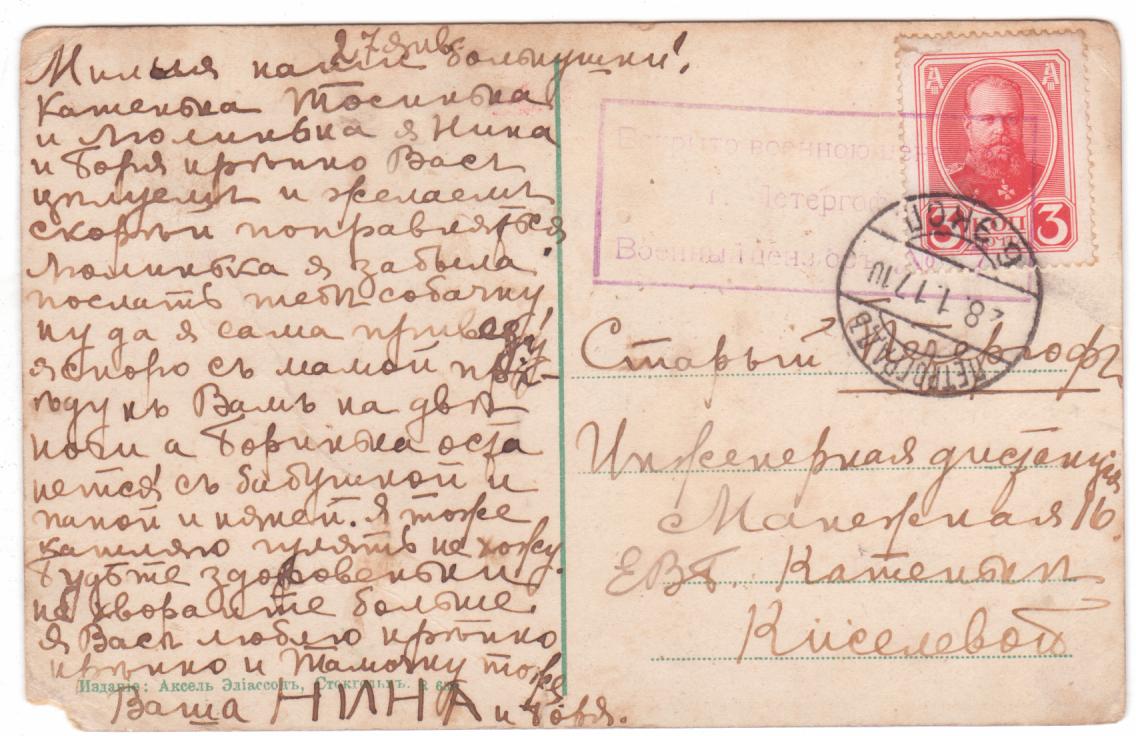 27 янв.
Милыя наши больнушки!
Катенька Тосинька
и Люлинька я Нина
и Боря крѣпко Васъ
цѣлуемъ и желаемъ
скорѣй поправляться
Люлинька я забыла
послать тебѣ собачку
ну да я сама привезу
я скоро съ мамой
ѣду къ Вамъ на двѣ
ночи а Боринька оста
нется съ бабушкой и
папой и няней. Я тоже
кашляю гулять не хожу.
Будьте здоровеньки
не хворайте больше.
я Васъ люблю крѣпко
крѣпко и Тамочку тоже
Ваша НИНА и Боря.
Изданіе: Аксель Эліассонъ, Стокгольмъ.
Вскрыто военною
г. Петергоф
Военный ценз
3 КОП 3
28.1.17.10
ПЕТРОГРАДЪ
Старый Петергофъ
Инженерная дистанція
Манежная 16.
ЕВБ. Катеньки
Киселевой